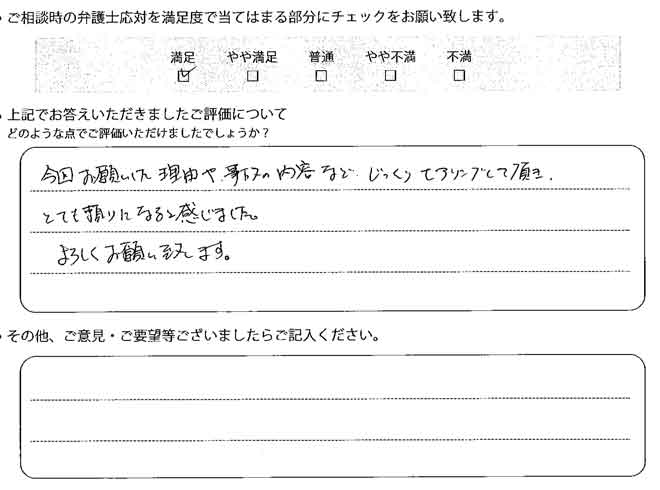 ご相談時の弁護士応対を満足度で当てはまる部分にチェックをお願い致します。
満足 やや満足 普通 やや不満 不満
上記でお答えいただきましたご評価について
どのような点でご評価いただけましたでしょうか？
今回お願いした理由や、事故の内容など じっくりヒアリングして頂き、
とても頼りになると感じました。
よろしくお願い致します。
その他、ご意見・ご要望等ございましたらご記入ください。